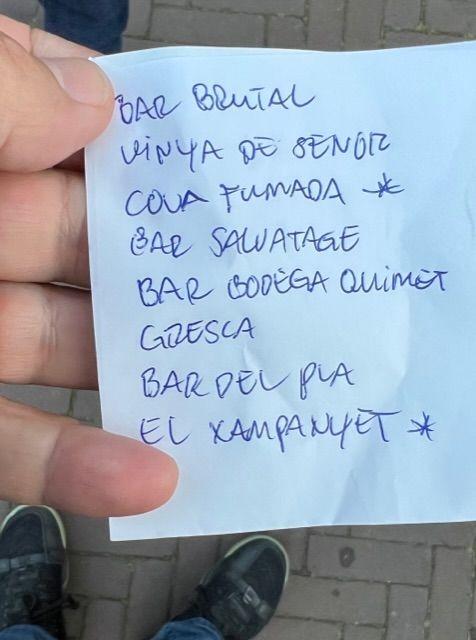 BAR BRUTAL
VINYA DE SENOR
COVA FUMADA *
BAR SALVATAGE
BAR BODEGA QUIMET
GRESCA
BAR DEL PLA
EL XAMPANYET *